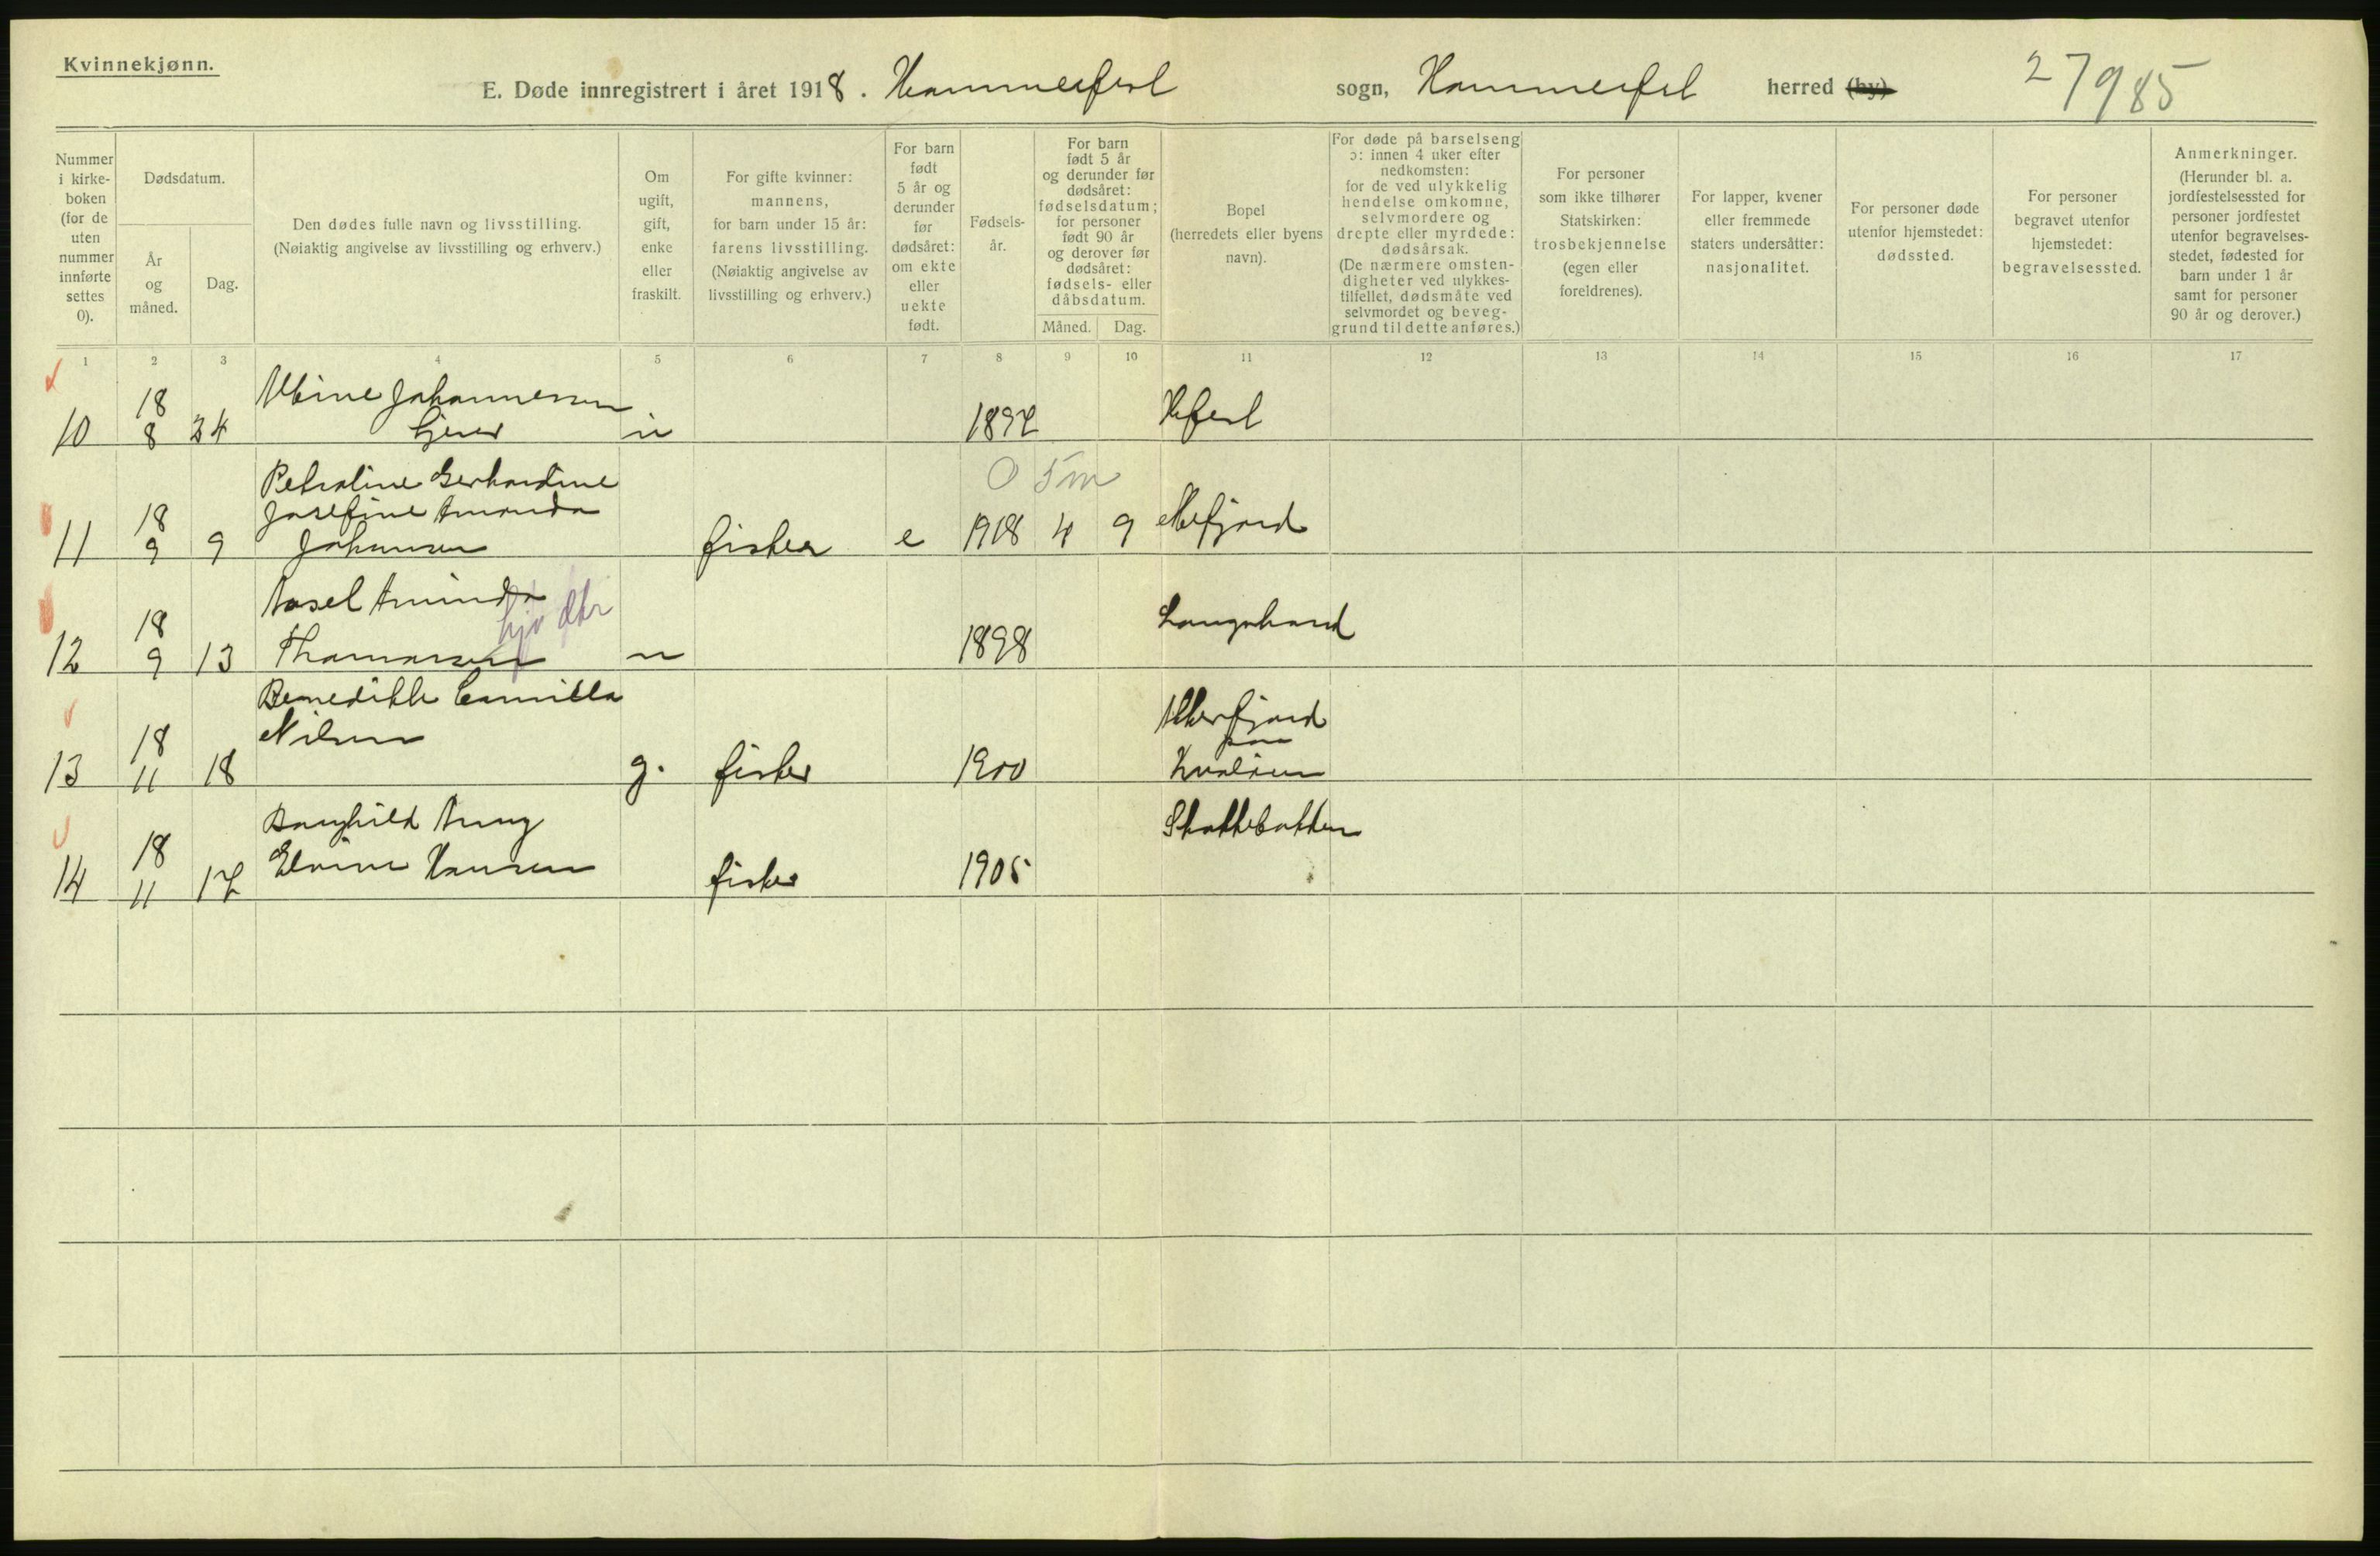 Kvinnekjønn.
E. Døde innregistrert i året 1918. Hammerfest sogn, Hammerfest herred (by) 27985
Nummer i kirke-boken (for de uten nummer innførte settes 0).
Dødsdatum.
År og måned.
Dag.
Den dødes fulle navn og livsstilling.
(Nøiaktig angivelse av livsstilling og erhverv.)
Om ugift, gift, enke eller fraskilt.
For gifte kvinner: mannens, for barn under 15 år: farens livsstilling. (Nøiaktig angivelse av livsstilling og erhverv.)
For barn født 5 år og derunder før dødsåret: om ekte eller uekte født.
Fødsels-år.
For barn født 5 år og derunder før dødsåret: fødselsdatum; for personer født 90 år og derover før dødsåret: fødsels- eller dåbsdatum.
Måned. Dag.
Bopel (herredets eller byens navn).
For døde på barselseng ɔ: innen 4 uker efter nedkomsten: for de ved ulykkelig hendelse omkomne, selvmordere og drepte eller myrdede: dødsårsak. (De nærmere omsten-digheter ved ulykkes-tilfellet, dødsmåte ved selvmordet og beveg-grund til dette anføres.)
For personer som ikke tilhører Statskirken: trosbekjennelse (egen eller foreldrenes).
For lapper, kvener eller fremmede staters undersåtter: nasjonalitet.
For personer døde utenfor hjemstedet: dødssted.
For personer begravet utenfor hjemstedet: begravelsessted.
Anmerkninger. (Herunder bl. a. jordfestelsessted for personer jordfestet utenfor begravelses-stedet, fødested for barn under 1 år samt for personer 90 år og derover.)
1 2 3 4 5 6 7 8 9 10 11 12 13 14 15 16 17
10 18 8 24 Johannessen u 1892 Hfest
0 5m
11 18 9 9 Petraline Gerhardine
Josefine Amanda
Johansen fisker e 1918 4 9
12 18 9 13 Aasel Aminda
Thomassen u 1898
13 18 11 18 Benedikte Camilla
Nilsen g. fisker 1900 Akkerfjord
paa
Kvaløen
14 18 11 17 Hansen fisker 1905 Skottebakken